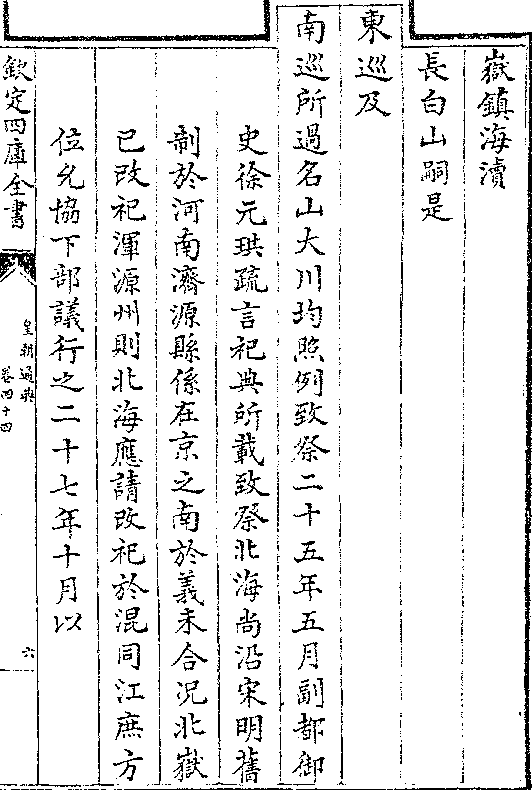 嶽鎮海瀆
長白山嗣是
東巡及
南巡所過名山大川均照例致祭二十五年五月副都御
史徐元珙疏言祀典所載致祭北海尚沿宋明舊
制於河南濟源縣係在京之南於義未合况北嶽
已改祀渾源州則北海應請改祀於混同江庶方
位允協下部議行之二十七年十月以
欽定四庫全書
皇朝通典
卷四十四
六